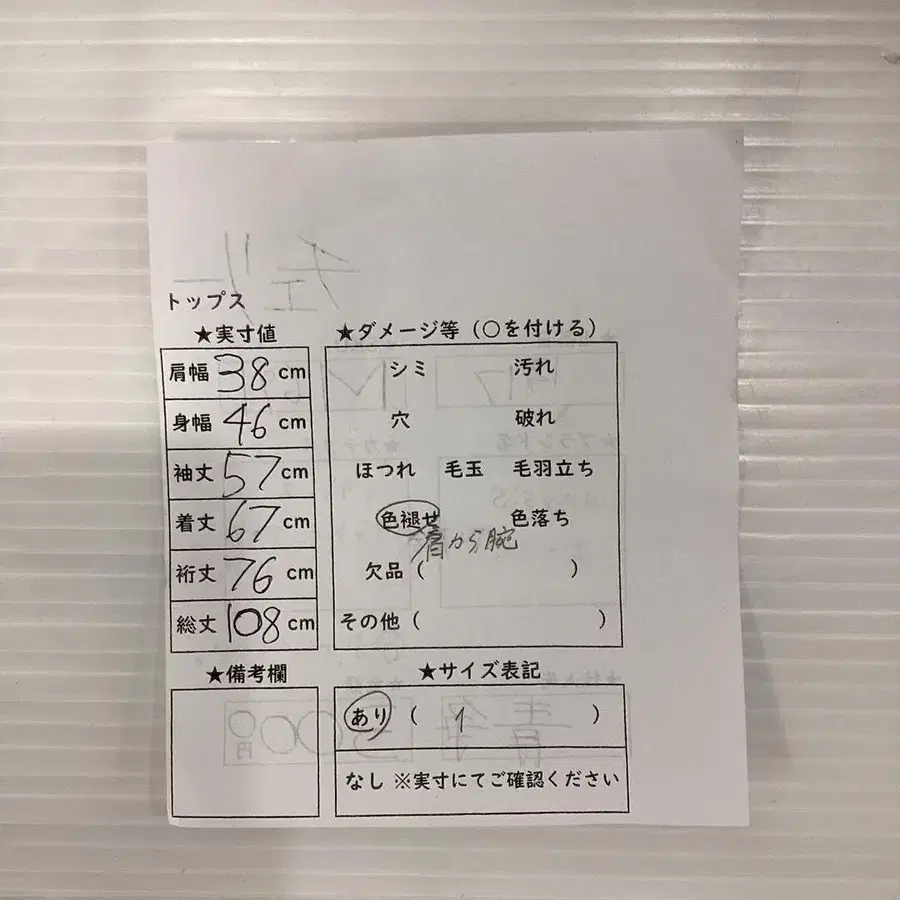 トップス
★実寸値
肩幅 38 cm
身幅 46 cm
袖丈 57 cm
着丈 67 cm
裄丈 76 cm
総丈 108 cm
★備考欄
★ダメージ等（○を付ける）
シミ 汚れ
穴 破れ
ほつれ 毛玉 毛羽立ち
色褪せ 色落ち
肩から腕
欠品（ ）
その他（ ）
★サイズ表記
あり （ 1 ）
なし ※実寸にてご確認ください
チェリー